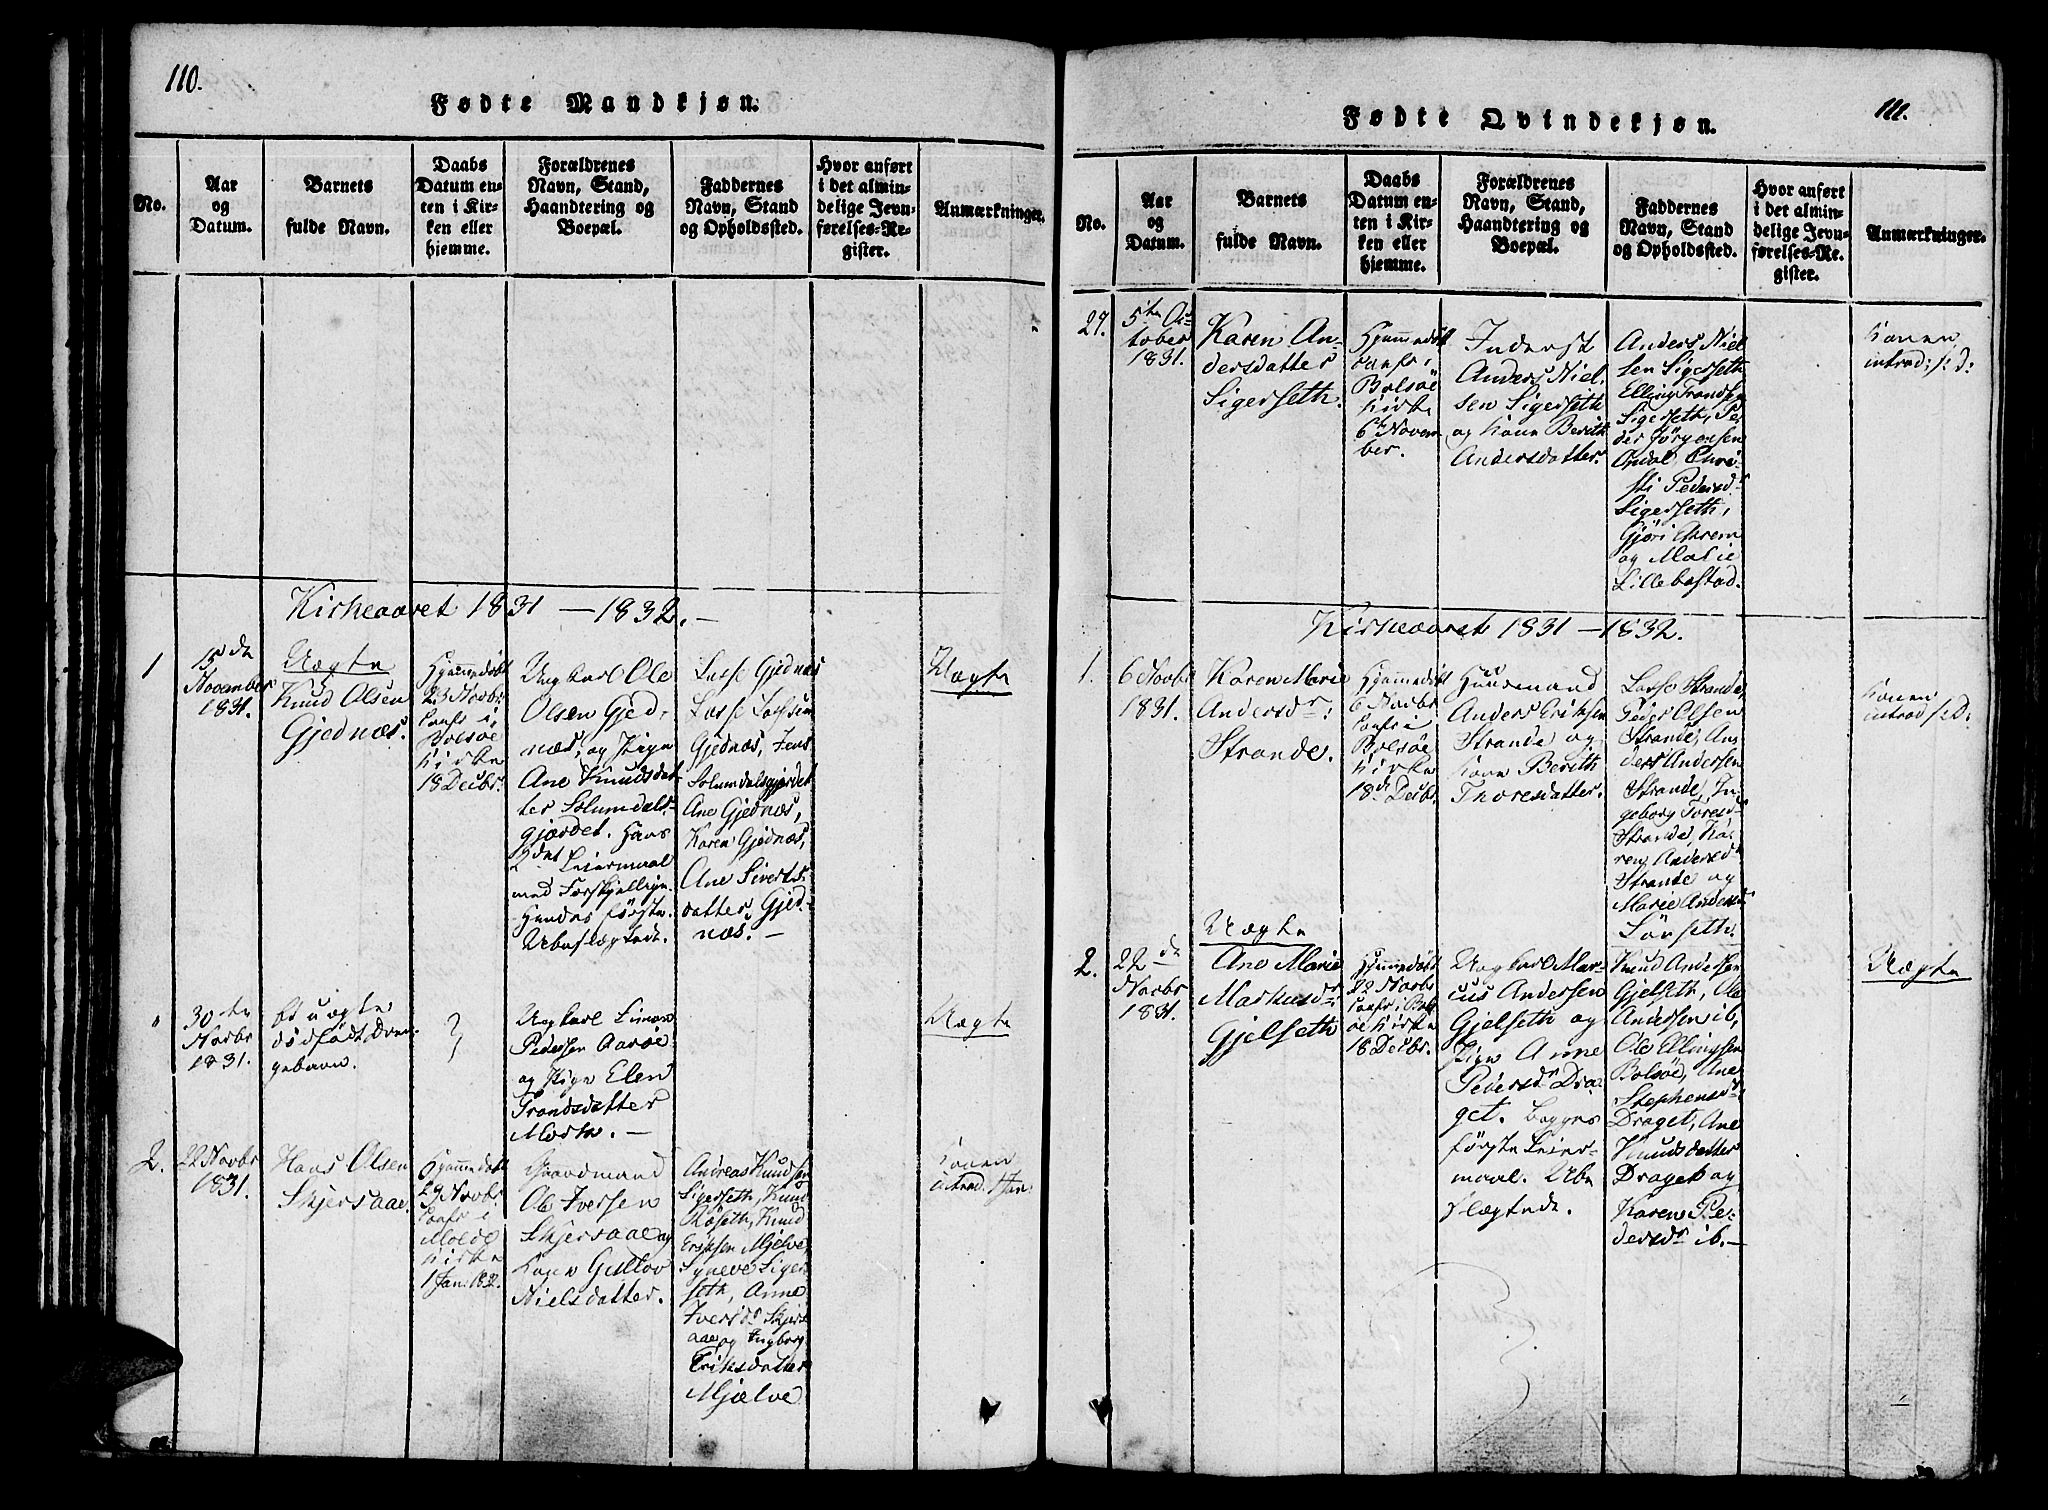 110.
Fødte Mandkjøn.
No.
Aar
og
Datum.
Barnets
fulde Navn.
Daabs
Datum en-
ten i Kir-
ken eller
hjemme.
Forældrenes
Navn, Stand,
Haandtering og
Boepæl.
Faddernes
Navn, Stand
og Opholdssted.
Hvor anført
i det almin-
delige Jevn-
førelses-Re-
gister.
Anmærkninger.
Kirkeaaret 1831 — 1832. —
1
15de
November
1831.
Uægte
Knud Olsen
Gjednæs.
Hjemmedøbt
23 Novbr
Bolsøe
Kirke
18 Decbr.
Ungkarl Ole
Olsen Gjed-
næs, og Pige
Ane Knudsdat-
ter Solumdals-
gjærdet. Hans
2det Leiermaal
med Forskjellige.
Hendes første.
Ubeslægtede.
Lasse Gjednæs
Lasse Lassen
Gjednæs, Jens
Solumdalsgjærdet
Ane Gjednæs,
Karen Gjednæs,
Ane Siverts-
datter Gjed-
næs. —
Uægte
"
30te
Novbr
1831.
Et uægte
dødfødt Dren-
gebarn.
Ungkarl Simon
Pedersen Aarøe
og Pige Elen
Trondsdatter
Mork. —
Uægte
2.
22 Novbr
1831.
Hans Olsen
Skjersaae.
Hjemmedøbt
29 Novbr
Molde
Kirke
1 Jan: 1832.
Gaardmand
Ole Iversen
Skjersaae og
Kone Gullov
Nielsdatter.
Andreas Knudsen
Sigerseth, Knud
Røseth, Knud
Eriksen Mjelve,
Syneve Siger-
seth, Anne
Iversdr Skjers-
aae og Ingborg
Eriksdatter
Mjælve
Konen
introd: 1 Jan:
111.
Fødte Qvindekjøn.
No.
Aar
og
Datum.
Barnets
fulde Navn.
Daabs
Datum en-
ten i Kir-
ken eller
hjemme.
Forældrenes
Navn, Stand,
Haandtering og
Boepæl.
Faddernes
Navn, Stand
og Opholdssted.
Hvor anført
i det almin-
delige Jevn-
førelses-Re-
gister.
Anmærkninger.
29.
5te Oc-
tober
1831.
Karen An-
dersdatter
Sigerseth.
Hjemmedøbt
Bolsøe
Kirke
6te Novem-
ber.
Inderst
Anders Niel-
sen Sigerseth
og Kone Berith
Andersdatter.
Anders Niel-
sen Sigerseth
Elling Trondsen
Sigerseth, Pe-
der Jørgensen
Opdal,
Pedersdr
Sigerseth,
Gjøri
og Malie
Lillebostad.
Konen
introd: s: D:
Kirkeaaret 1831 — 1832.
1.
6 Novbr
1831.
Karen Marie
Andersdr:
Strande.
Hjemmedøbt
6 Novbr
Bolsøe
Kirke
18de Decbr.
Huusmand
Anders Eriksen
Strande og
Kone Berith
Thoresdatter.
Lasse Strande,
Peder Olsen
Strande, An-
ders Andersen
Strande, In-
geborg Toresdr
Strande, Ka-
ren Andersdr
Strande og
Marie Andersdr
Sørseth.
Konen
introd s: D:
2.
22de
Novbr
1831.
Uægte
Ane Marie
Markusdr:
Gjelseth
Hjemmedøbt
Novbr
Bols-
øe Kirke
18 Decbr.
Ungkarl Mar-
cus Andersen
Gjelseth og
Pige Anne
Pedersdr Dra-
get. Begges
første Leier-
maal. Ube-
slægtede.
Knud Andersen
Gjelseth, Ole
Andersen ib,
Ole Ellingsen
Bolsøe, Ane
Stephensdr
Draget, Ane
Knudsdatter
Draget og
Karen Pe-
dersdr ib. —
Uægte